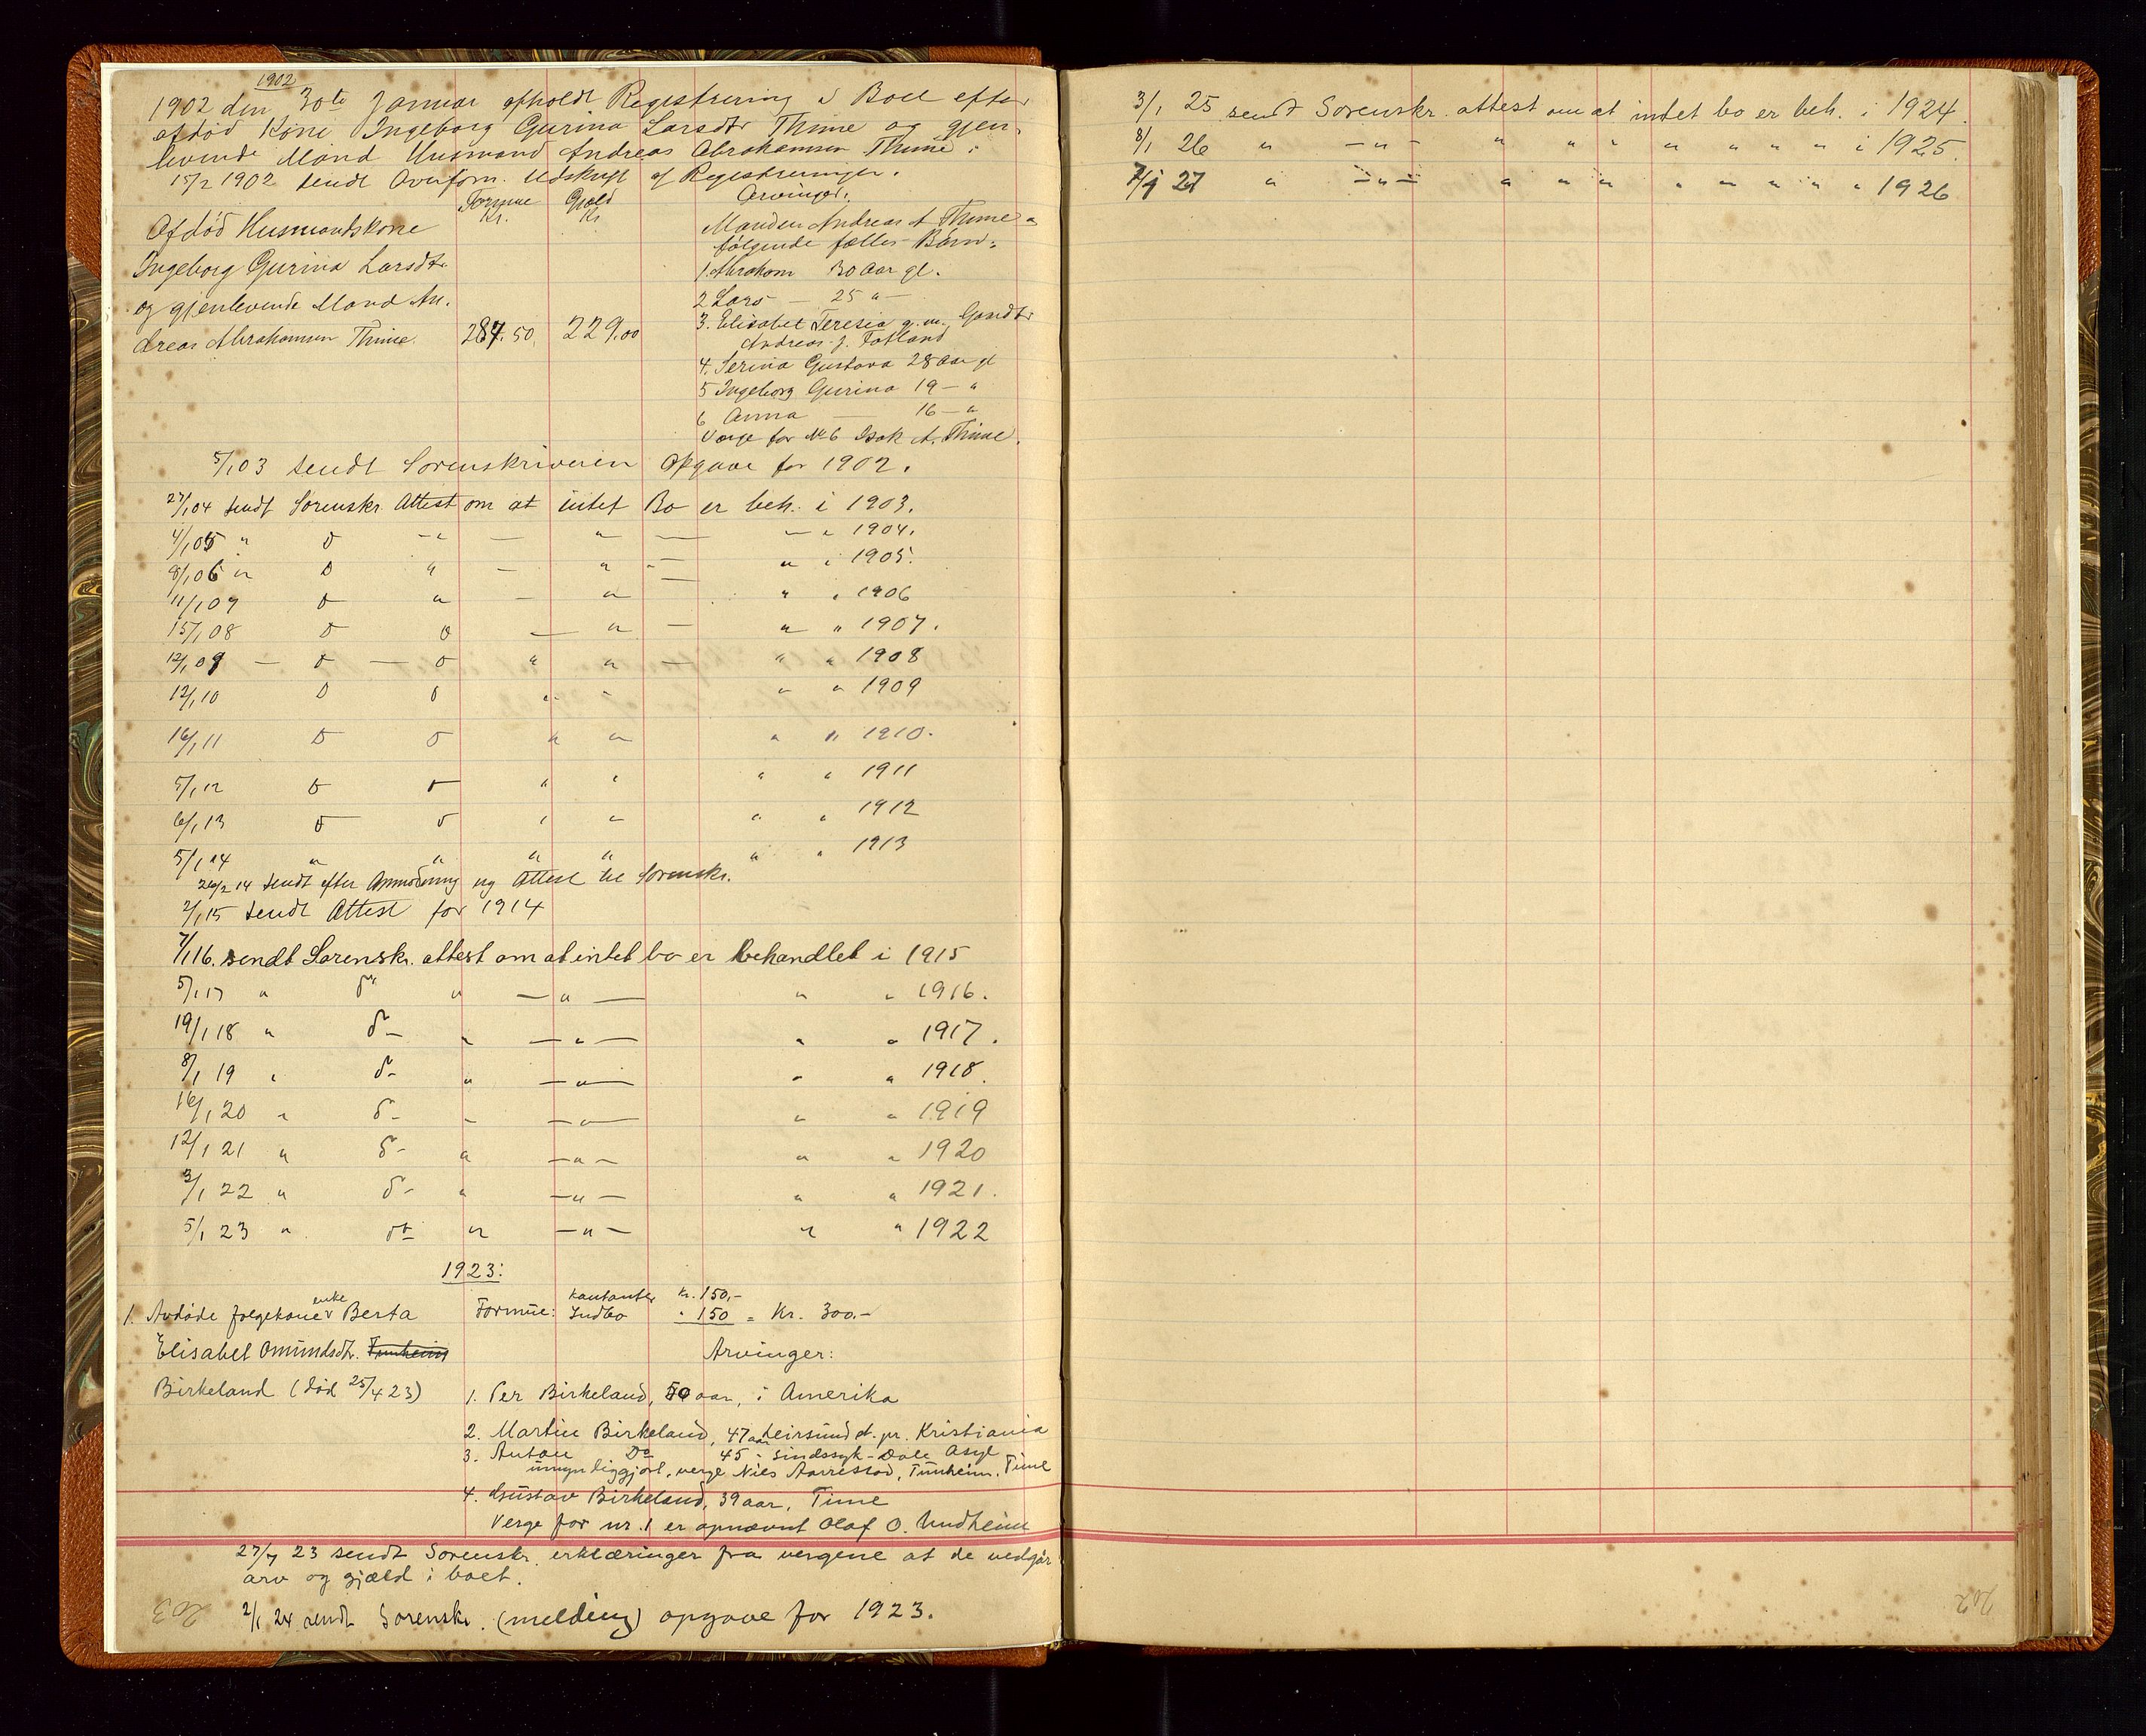 1902
1902 den 30te Januar afholdt Registrering i Boet efter
afdød Kone Ingeborg Gurina Larsdtr Thime og gjen-
levende Mand Husmand Andreas Abrahamsen Thime:
15/2 1902 sendt Overform. Udskrift af Registreringen.
Formue Kr. Gjæld Kr. Arvinger:
Afdød Husmandskone
Ingeborg Gurina Larsdtr.
og gjenlevende Mand An-
dreas Abrahamsen Thime. 287.50. 229.00
Manden Andreas A Thime &
følgende fælles Børn:
1. Abraham 30 Aar gl.
2 Lars — 25 " —
3. Elisabet Teresia g. m. Gaardbr
Andreas J. Fotland
4. Serina Gustava 28 Aar gl
5 Ingeborg Gurina 19 — "
6 Anna — 16 — "
Værge for No 6 Isak A. Thime.
5/1 03 sendt Sorenskriveren Opgave for 1902.
27/1 04 sendt Sorenskr. Attest om at intet Bo er beh. i 1903.
4/1 05 " D — " — " — — " 1904.
8/1 06 " D " — " " — " i 1905.
11/1 07 D " — " " " 1906
15/1 08 D D — " — " " 1907.
12/1 09 — D — D " " — " " 1908
12/1 10 D D " - " " 1909
16/1 11 D D " " " " 1910.
5/1 12 D D " " " " 1911
6/1 13 D D " " " " 1912
5/1 14 " " " " " " 1913
26/2 14 sendt efter Anmodning ny Attest til Sorenskr.
2/1 15 sendt Attest for 1914
7/1 16. sendt Sorenskr. attest om at intet bo er behandlet i 1915
5/1 17 " do " — " — " " 1916.
19/1 18 " do " — " — " " 1917.
8/1 19 " do " — " — " " 1918.
16/1 20 " do " — " — " " 1919
12/1 21 " do " — " — " " 1920
3/1 22 " do " — " — " " 1921.
5/1 23 " do " — " — " " 1922
1923:
1. Avdøde følgekone enke Berta Formue: kontanter Kr. 150,-
Indbo " 150 = Kr. 300.-
Elisabet Omundsdtr. Tunheim Arvinger:
Birkeland (død 25/4 23)
1. Per Birkeland, 50 aar, i Amerika
2. Martin Birkeland, 47 aar Leirsund st. pr. Kristiania
3. Anton Do 45 " Sindssyk - Dale Asyl
umyndiggjort, verge Nils Aarrestad, Tunheim, Time
4. Gustav Birkeland, 39 aar, Time
Verge for nr. 1 er opnævnt Olaf O. Undheim
27/7 23 sendt Sorenskr. erklæringer fra vergene at de vedgår
arv og gjæld i boet.
2/1 24 sendt Sorenskr. (melding) opgave for 1923.
203
3/1 25 sendt Sorenskr. attest om at intet bo er beh. i 1924.
8/1 26 " — " — " " " " " " " " i 1925.
7/1 27 " — " — " " " " " " " " 1926
202